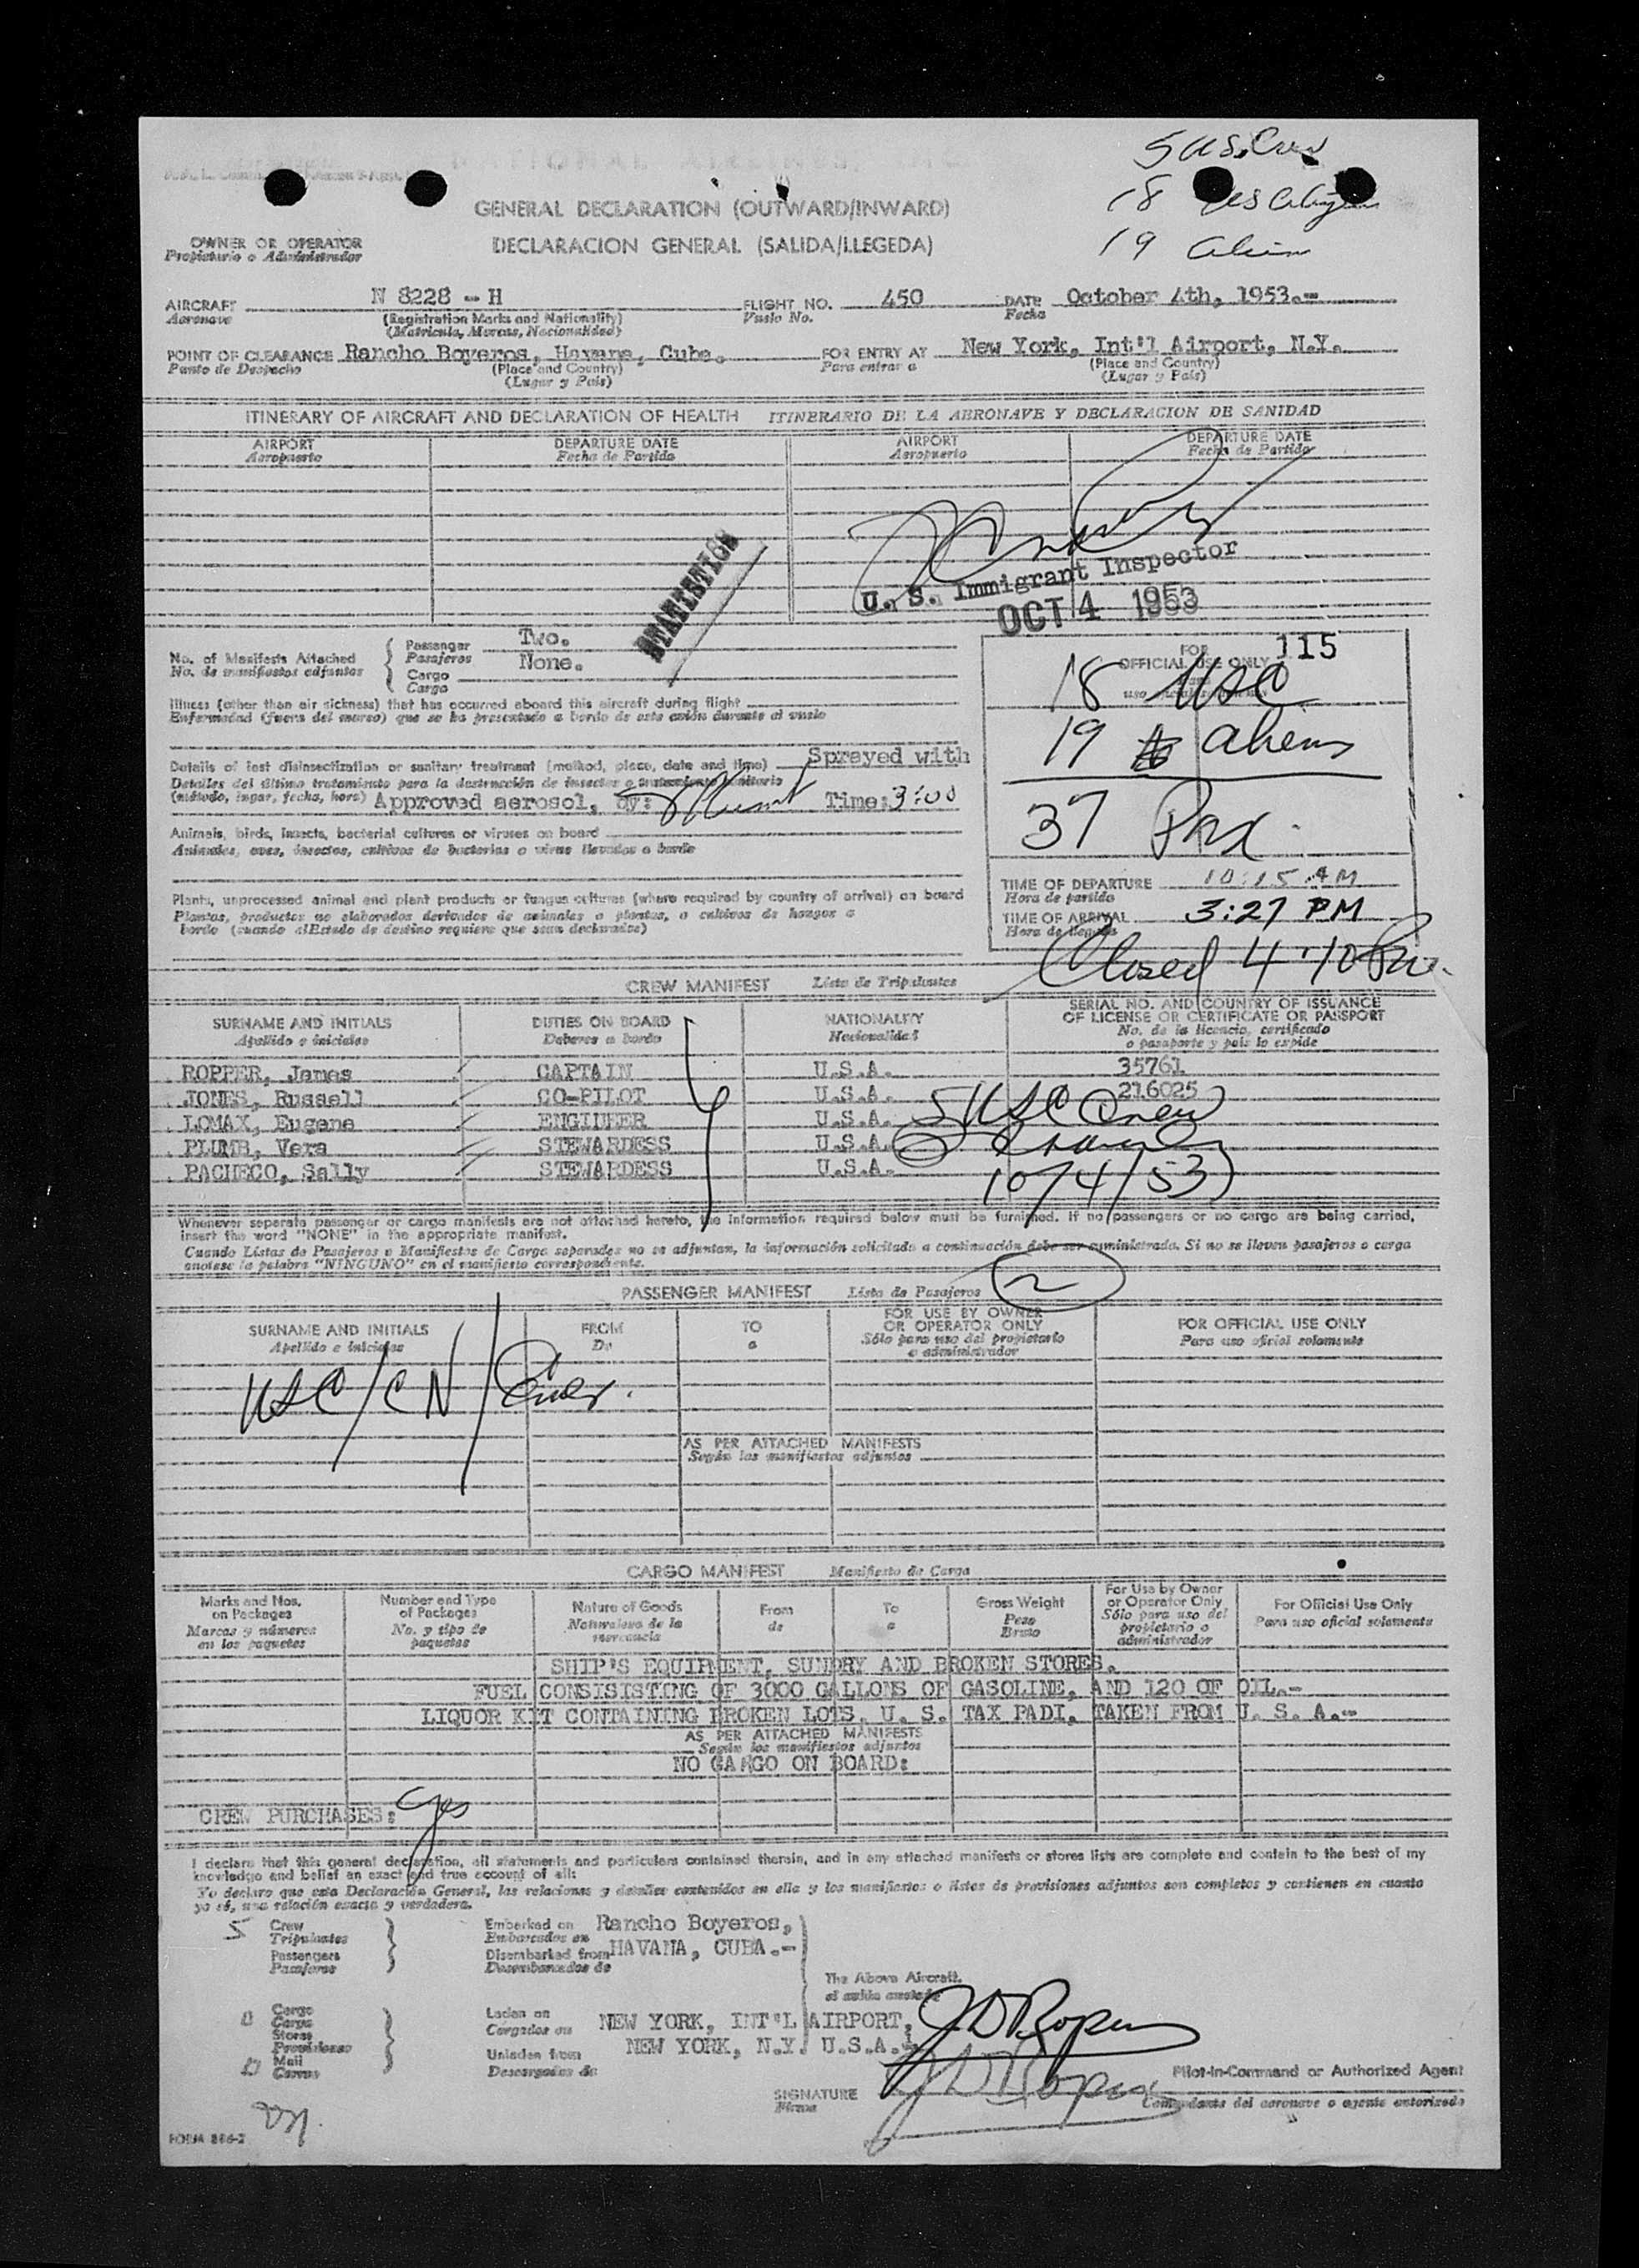 5 US. Crew
18 US Citizen
19 Alien
NATIONAL AIRLINES, INC
GENERAL DECLARATION (OUTWARD/INWARD)
DECLARACION GENERAL (SALIDA/LLEGEDA)
OWNER OR OPERATOR
Propietario o Administrador
AIRCRAFT N 8228 - H FLIGHT NO. 450 DATE October 4th, 1953.-
Aeronave (Registration Marks and Nationality) Vuelo No. Fecha
(Matricula, Marcas, Nacionalidad)
POINT OF CLEARANCE Rancho Boyeros, Havana, Cuba. FOR ENTRY AT New York, Int'l Airport, N.Y.
Punto de Despacho (Place and Country) Para entrar a (Place and Country)
(Lugar y Pais) (Lugar y Pais)
ITINERARY OF AIRCRAFT AND DECLARATION OF HEALTH ITINERARIO DE LA AERONAVE Y DECLARACION DE SANIDAD
AIRPORT DEPARTURE DATE AIRPORT DEPARTURE DATE
Aeropuerto Fecha de Partida Aeropuerto Fecha de Partida
U. S. Immigrant Inspector
OCT 4 1953
No. of Manifests Attached Passenger Two.
No. de manifiestos adjuntos Pasajeros
Cargo None.
Cargo
FOR 115
OFFICIAL USE ONLY
18 USC
19 aliens
37 Pax.
Illness (other than air sickness) that has occurred aboard this aircraft during flight
Enfermedad (fuera del mareo) que se ha presentado a bordo de este avión durante el vuelo
Details of last disinsectization or sanitary treatment (method, place, date and time) Sprayed with
Detalles del último tratamiento para la destrucción de insectos o tratamiento sanitario
(método, lugar, fecha, hora) Approved aerosol, by: Time: 3:00
Animals, birds, insects, bacterial cultures or viruses on board
Animales, aves, insectos, cultivos de bacterias o virus llevados a bordo
Plants, unprocessed animal and plant products or fungus cultures (where required by country of arrival) on board
Plantas, productos no elaborados derivados de animales o plantas, o cultivos de hongos a
bordo (cuando el Estado de destino requiere que sean declarados)
TIME OF DEPARTURE 10:15 AM
Hora de partida
TIME OF ARRIVAL 3:27 PM
Hora de llegada
Closed 4:10 Pm.
CREW MANIFEST Lista de Tripulantes
SURNAME AND INITIALS DUTIES ON BOARD NATIONALITY SERIAL NO. AND COUNTRY OF ISSUANCE
OF LICENSE OR CERTIFICATE OR PASSPORT
Apellido e iniciales Deberes a bordo Nacionalidad No. de la licencia, certificado
o pasaporte y pais lo expide
ROPPER, James CAPTAIN U.S.A. 35761
JONES, Russell CO-PILOT U.S.A. 216025
LOMAX, Eugene ENGINEER U.S.A. 5 USC Crew
PLUMB, Vera STEWARDESS U.S.A.
PACHECO, Sally STEWARDESS U.S.A. 10/4/53
Whenever separate passenger or cargo manifests are not attached hereto, the information required below must be furnished. If no passengers or no cargo are being carried,
insert the word "NONE" in the appropriate manifest.
Cuando Listas de Pasajeros o Manifiestos de Carga separados no se adjuntan, la información solicitada a continuación debe ser suministrada. Si no se llevan pasajeros o carga
anotese la palabra "NINGUNO" en el manifiesto correspondiente.
2
PASSENGER MANIFEST Lista de Pasajeros
SURNAME AND INITIALS FROM TO FOR USE BY OWNER
OR OPERATOR ONLY FOR OFFICIAL USE ONLY
Apellido e iniciales De a Sólo para uso del propietario
o administrador Para uso oficial solamente
USC/CN/
AS PER ATTACHED MANIFESTS
Según los manifiestos adjuntos
CARGO MANIFEST Manifiesto de Carga
Marks and Nos.
on Packages
Marcas y números
en los paquetes
Number and Type
of Packages
No. y tipo de
paquetes
Nature of Goods
Naturaleza de la
mercancia
From
de
To
a
Gross Weight
Peso
Bruto
For Use by Owner
or Operator Only
Sólo para uso del
propietario o
administrador
For Official Use Only
Para uso oficial solamente
SHIP'S EQUIPMENT, SUNDRY AND BROKEN STORES.
FUEL CONSISISTING OF 3000 GALLONS OF GASOLINE, AND 120 OF OIL.-
LIQUOR KIT CONTAINING BROKEN LOTS, U. S. TAX PADI, TAKEN FROM U. S. A.-
AS PER ATTACHED MANIFESTS
Según los manifiestos adjuntos
NO CARGO ON BOARD:
CREW PURCHASES: yes
I declare that this general declaration, all statements and particulars contained therein, and in any attached manifests or stores lists are complete and contain to the best of my
knowledge and belief an exact and true account of all:
Yo declaro que esta Declaración General, las relaciones y detalles contenidos en ella y los manifiestos o listas de provisiones adjuntos son completos y contienen en cuanto
yo sé, una relación exacta y verdadera.
5 Crew
Tripulantes
Passengers
Pasajeros
Embarked on Rancho Boyeros,
Embarcados en
Disembarked from HAVANA, CUBA.-
Desembarcados de
The Above Aircraft.
0 Cargo
Carga
Stores
Provisiones
0 Mail
Correo
Laden on NEW YORK, INT'L AIRPORT,
Cargados en
NEW YORK, N.Y. U.S.A.
Unladen from
Descargados de
JD Roper
SIGNATURE JD Roper Pilot-in-Command or Authorized Agent
Firma Comandante del aeronave o agente autorizado
FORM 886-2